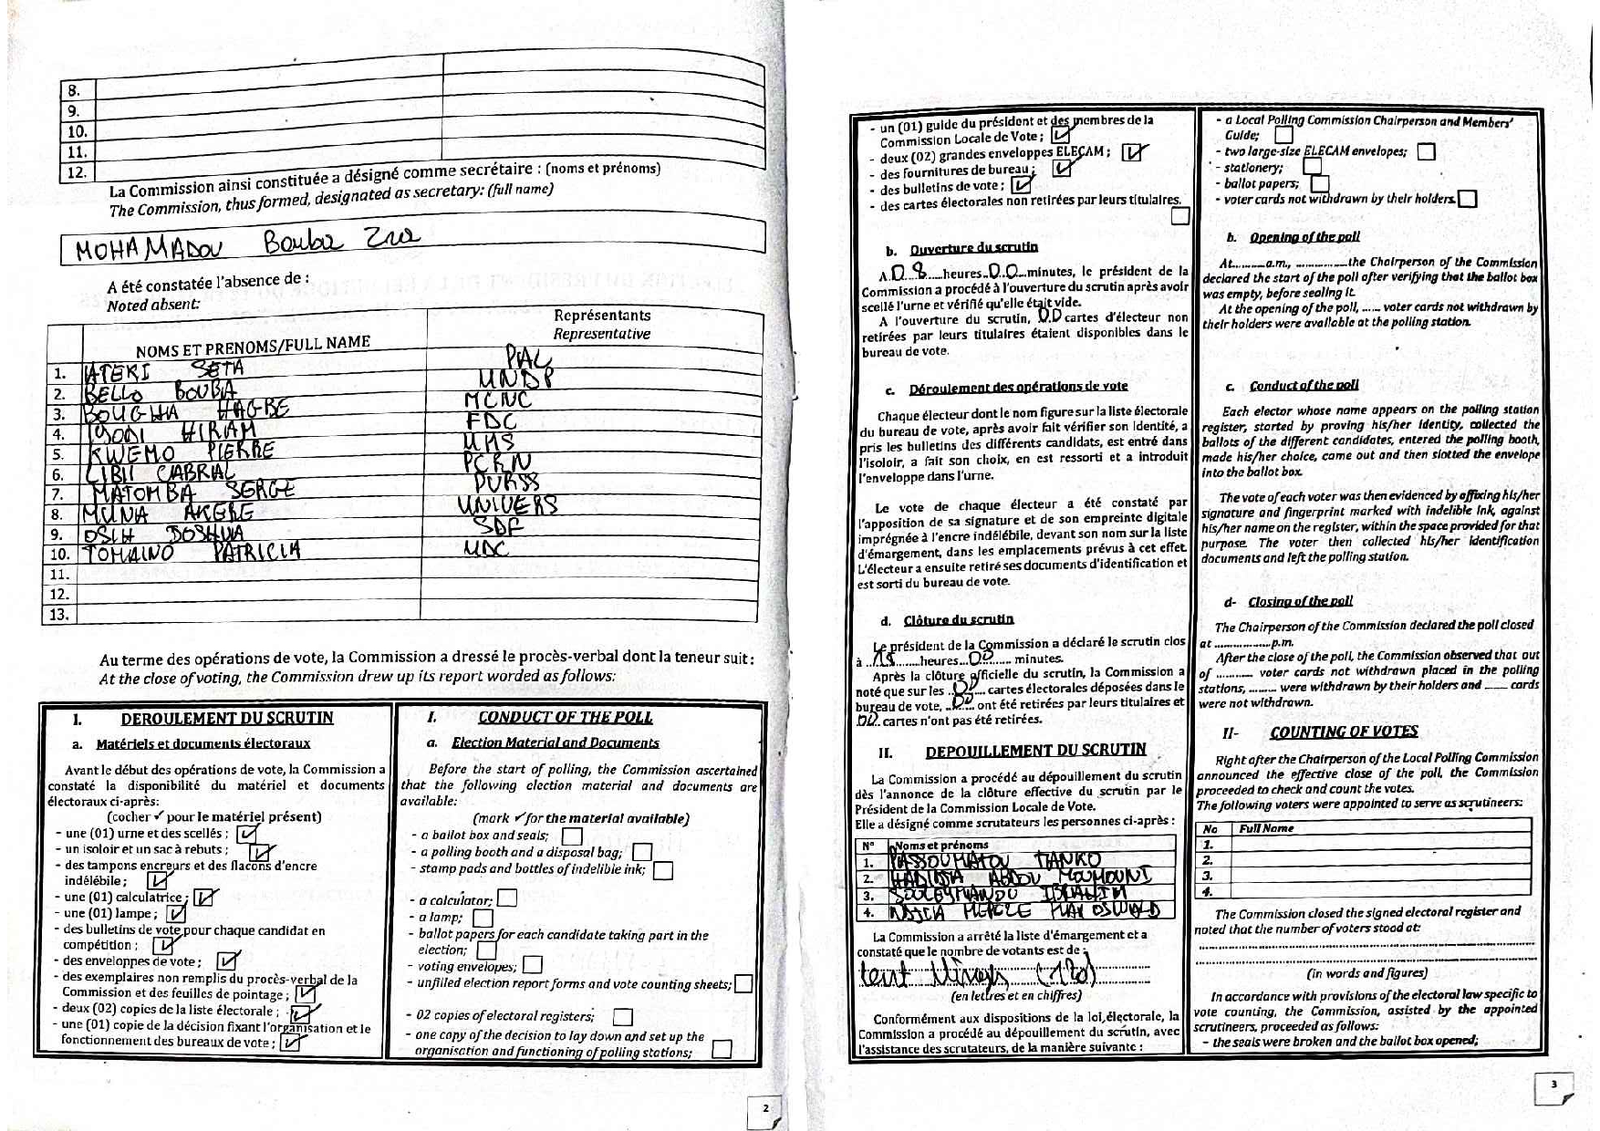 8.
9.
10.
11.
12.
La Commission ainsi constituée a désigné comme secrétaire : (noms et prénoms)
The Commission, thus formed, designated as secretary: (full name)
MOHAMADOU Bouba
A été constatée l'absence de :
Noted absent:
NOMS ET PRENOMS/FULL NAME
Représentants
Representative
1. ATEKI SETA PAL
2. BELLO BOUBA UNDP
3. BOUGHA HAGBE MCNC
4. IYODI HIRAM FDC
5. KWEMO PIERRE UMS
6. LIBII CABRAL PCRN
7. MATOMBA SERGE PURSS
8. MUNA AKERE UNIVERS
9. OSIH JOSHUA SDF
10. TOMAINO PATRICIA MDC
11.
12.
13.
Au terme des opérations de vote, la Commission a dressé le procès-verbal dont la teneur suit :
At the close of voting, the Commission drew up its report worded as follows:
I. DEROULEMENT DU SCRUTIN
a. Matériels et documents électoraux
Avant le début des opérations de vote, la Commission a
constaté la disponibilité du matériel et documents
électoraux ci-après:
(cocher ✓ pour le matériel présent)
- une (01) urne et des scellés ; ✓
- un isoloir et un sac à rebuts ; ✓
- des tampons encreurs et des flacons d'encre
indélébile ; ✓
- une (01) calculatrice ; ✓
- une (01) lampe ; ✓
- des bulletins de vote pour chaque candidat en
compétition ; ✓
- des enveloppes de vote ; ✓
- des exemplaires non remplis du procès-verbal de la
Commission et des feuilles de pointage ; ✓
- deux (02) copies de la liste électorale ; ✓
- une (01) copie de la décision fixant l'organisation et le
fonctionnement des bureaux de vote ; ✓
I. CONDUCT OF THE POLL
a. Election Material and Documents
Before the start of polling, the Commission ascertained
that the following election material and documents are
available:
(mark ✓ for the material available)
- a ballot box and seals;
- a polling booth and a disposal bag;
- stamp pads and bottles of indelible ink;
- a calculator;
- a lamp;
- ballot papers for each candidate taking part in the
election;
- voting envelopes;
- unfilled election report forms and vote counting sheets;
- 02 copies of electoral registers;
- one copy of the decision to lay down and set up the
organisation and functioning of polling stations;
2
- un (01) guide du président et des membres de la
Commission Locale de Vote ; ✓
- deux (02) grandes enveloppes ELECAM ; ✓
- des fournitures de bureau ; ✓
- des bulletins de vote ; ✓
- des cartes électorales non retirées par leurs titulaires.
b. Ouverture du scrutin
A 08 heures 00 minutes, le président de la
Commission a procédé à l'ouverture du scrutin après avoir
scellé l'urne et vérifié qu'elle était vide.
A l'ouverture du scrutin, 00 cartes d'électeur non
retirées par leurs titulaires étaient disponibles dans le
bureau de vote.
c. Déroulement des opérations de vote
Chaque électeur dont le nom figure sur la liste électorale
du bureau de vote, après avoir fait vérifier son identité, a
pris les bulletins des différents candidats, est entré dans
l'isoloir, a fait son choix, en est ressorti et a introduit
l'enveloppe dans l'urne.
Le vote de chaque électeur a été constaté par
l'apposition de sa signature et de son empreinte digitale
imprégnée à l'encre indélébile, devant son nom sur la liste
d'émargement, dans les emplacements prévus à cet effet.
L'électeur a ensuite retiré ses documents d'identification et
est sorti du bureau de vote.
d. Clôture du scrutin
Le président de la Commission a déclaré le scrutin clos
à 18 heures 00 minutes.
Après la clôture officielle du scrutin, la Commission a
noté que sur les 00 cartes électorales déposées dans le
bureau de vote, 00 ont été retirées par leurs titulaires et
00 cartes n'ont pas été retirées.
II. DEPOUILLEMENT DU SCRUTIN
La Commission a procédé au dépouillement du scrutin
dès l'annonce de la clôture effective du scrutin par le
Président de la Commission Locale de Vote.
Elle a désigné comme scrutateurs les personnes ci-après :
N° Noms et prénoms
1. TIANKO
2. ABDOU MOUMOUNI
3. SOULEYMANOU IBRAHIM
4. OSWALD
La Commission a arrêté la liste d'émargement et a
constaté que le nombre de votants est de :
cent vingt (120)
(en lettres et en chiffres)
Conformément aux dispositions de la loi électorale, la
Commission a procédé au dépouillement du scrutin, avec
l'assistance des scrutateurs, de la manière suivante :
- a Local Polling Commission Chairperson and Members'
Guide;
- two large-size ELECAM envelopes;
- stationery;
- ballot papers;
- voter cards not withdrawn by their holders.
b. Opening of the poll
At..........a.m., ..............the Chairperson of the Commission
declared the start of the poll after verifying that the ballot box
was empty, before sealing it.
At the opening of the poll, ...... voter cards not withdrawn by
their holders were available at the polling station.
c. Conduct of the poll
Each elector whose name appears on the polling station
register, started by proving his/her identity, collected the
ballots of the different candidates, entered the polling booth,
made his/her choice, came out and then slotted the envelope
into the ballot box.
The vote of each voter was then evidenced by affixing his/her
signature and fingerprint marked with indelible ink, against
his/her name on the register, within the space provided for that
purpose. The voter then collected his/her identification
documents and left the polling station.
d- Closing of the poll
The Chairperson of the Commission declared the poll closed
at ..................p.m.
After the close of the poll, the Commission observed that out
of ........... voter cards not withdrawn placed in the polling
stations, ........ were withdrawn by their holders and ...... cards
were not withdrawn.
II- COUNTING OF VOTES
Right after the Chairperson of the Local Polling Commission
announced the effective close of the poll, the Commission
proceeded to check and count the votes.
The following voters were appointed to serve as scrutineers:
No Full Name
1.
2.
3.
4.
The Commission closed the signed electoral register and
noted that the number of voters stood at:
(in words and figures)
In accordance with provisions of the electoral law specific to
vote counting, the Commission, assisted by the appointed
scrutineers, proceeded as follows:
- the seals were broken and the ballot box opened;
3